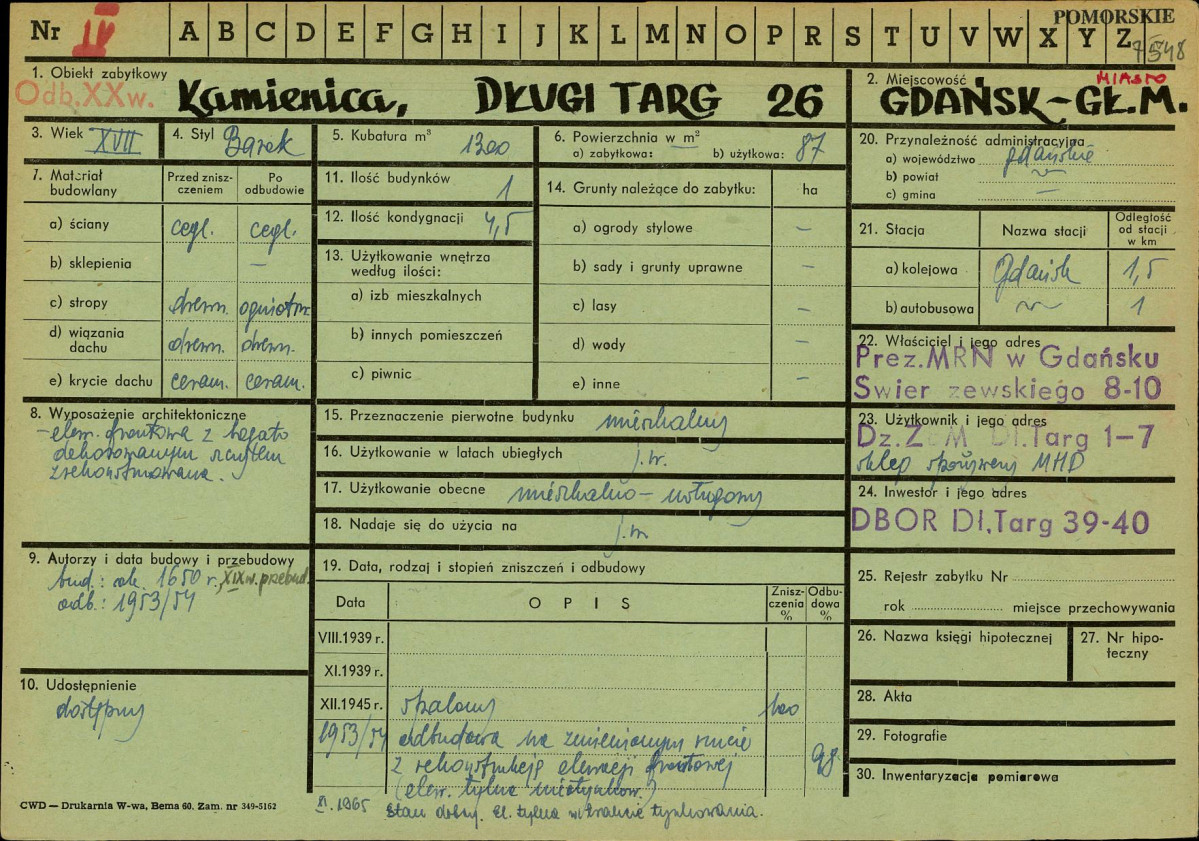 POMORSKIE
Nr IV A B C D E F G H I J K L M N O P R S T U V W X Y Z
7548
1. Obiekt zabytkowy
Odb.XXw. Kamienica, DŁUGI TARG 26
2. Miejscowość MIASTO
GDAŃSK-GŁ.M.
3. Wiek XVII
4. Styl Barok
5. Kubatura m³ 1300
6. Powierzchnia w m²
a) zabytkowa: — b) użytkowa: 87
7. Materiał budowlany
Przed zniszczeniem
Po odbudowie
a) ściany cegl. cegl.
b) sklepienia —
c) stropy drewn. ogniotrw.
d) wiązania dachu drewn. drewn.
e) krycie dachu ceram. ceram.
8. Wyposażenie architektoniczne
- elew. frontowa z bogato
dekorowanym szczytem
zrekonstruowana.
9. Autorzy i data budowy i przebudowy
bud.: ok. 1650 r., XIX w. przebud.
odb.: 1953/54
10. Udostępnienie
dostępny
11. Ilość budynków 1
12. Ilość kondygnacji 4,5
13. Użytkowanie wnętrza według ilości:
a) izb mieszkalnych
b) innych pomieszczeń
c) piwnic
14. Grunty należące do zabytku: ha
a) ogrody stylowe —
b) sady i grunty uprawne —
c) lasy —
d) wody —
e) inne —
15. Przeznaczenie pierwotne budynku mieszkalny
16. Użytkowanie w latach ubiegłych j.w.
17. Użytkowanie obecne mieszkalno-usługowy
18. Nadaje się do użycia na j.w.
19. Data, rodzaj i stopień zniszczeń i odbudowy
Data OPIS Zniszczenia % Odbudowa %
VIII.1939 r.
XI.1939 r.
XII.1945 r. spalony 100
1953/54 odbudowa na zmienionym rzucie
z rekonstrukcją elewacji frontowej 98
(elew. tylna nietynkow.)
XI.1965 Stan dobry. El. tylna w trakcie tynkowania.
20. Przynależność administracyjna
a) województwo gdańskie
b) powiat
c) gmina —
21. Stacja Nazwa stacji Odległość od stacji w km
a) kolejowa Gdańsk 1,5
b) autobusowa 1
22. Właściciel i jego adres
Prez.MRN w Gdańsku
Swier zewskiego 8-10
23. Użytkownik i jego adres
Dz.Z M Dl.Targ 1-7
sklep spożywczy MHD
24. Inwestor i jego adres
DBOR Dl.Targ 39-40
25. Rejestr zabytku Nr
rok miejsce przechowywania
26. Nazwa księgi hipotecznej
27. Nr hipoteczny
28. Akta
29. Fotografie
30. Inwentaryzacja pomiarowa
CWD — Drukarnia W-wa, Bema 60. Zam. nr 349-5162